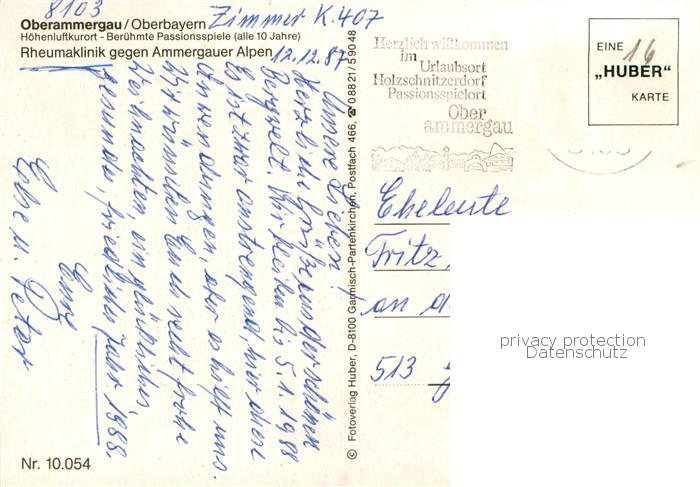 8103
Zimmer K. 407
Oberammergau/Oberbayern
Höhenluftkurort - Berühmte Passionsspiele (alle 10 Jahre)
Rheumaklinik gegen Ammergauer Alpen
12.12.87
Unsere Lieben!
Herzliche Grüße aus der schönen
Bergwelt. Wir bleiben bis 5.1.1988
Es ist zwar anstrengend, hier diese
Anwendungen, aber es hilft uns.
Wir wünschen Euch recht frohe
Weihnachten, ein glückliches,
gesundes, friedliches Jahr 1988.
Eure
Else u. Peter
Nr. 10.054
© Fotoverlag Huber, D-8100 Garmisch-Partenkirchen, Postfach 466, ☎ 08821/59048
Herzlich willkommen
im
Urlaubsort
Holzschnitzerdorf
Passionsspielort
Ober
ammergau
EINE
16
„HUBER"
KARTE
Eheleute
Fritz
an d
513
privacy protection
Datenschutz